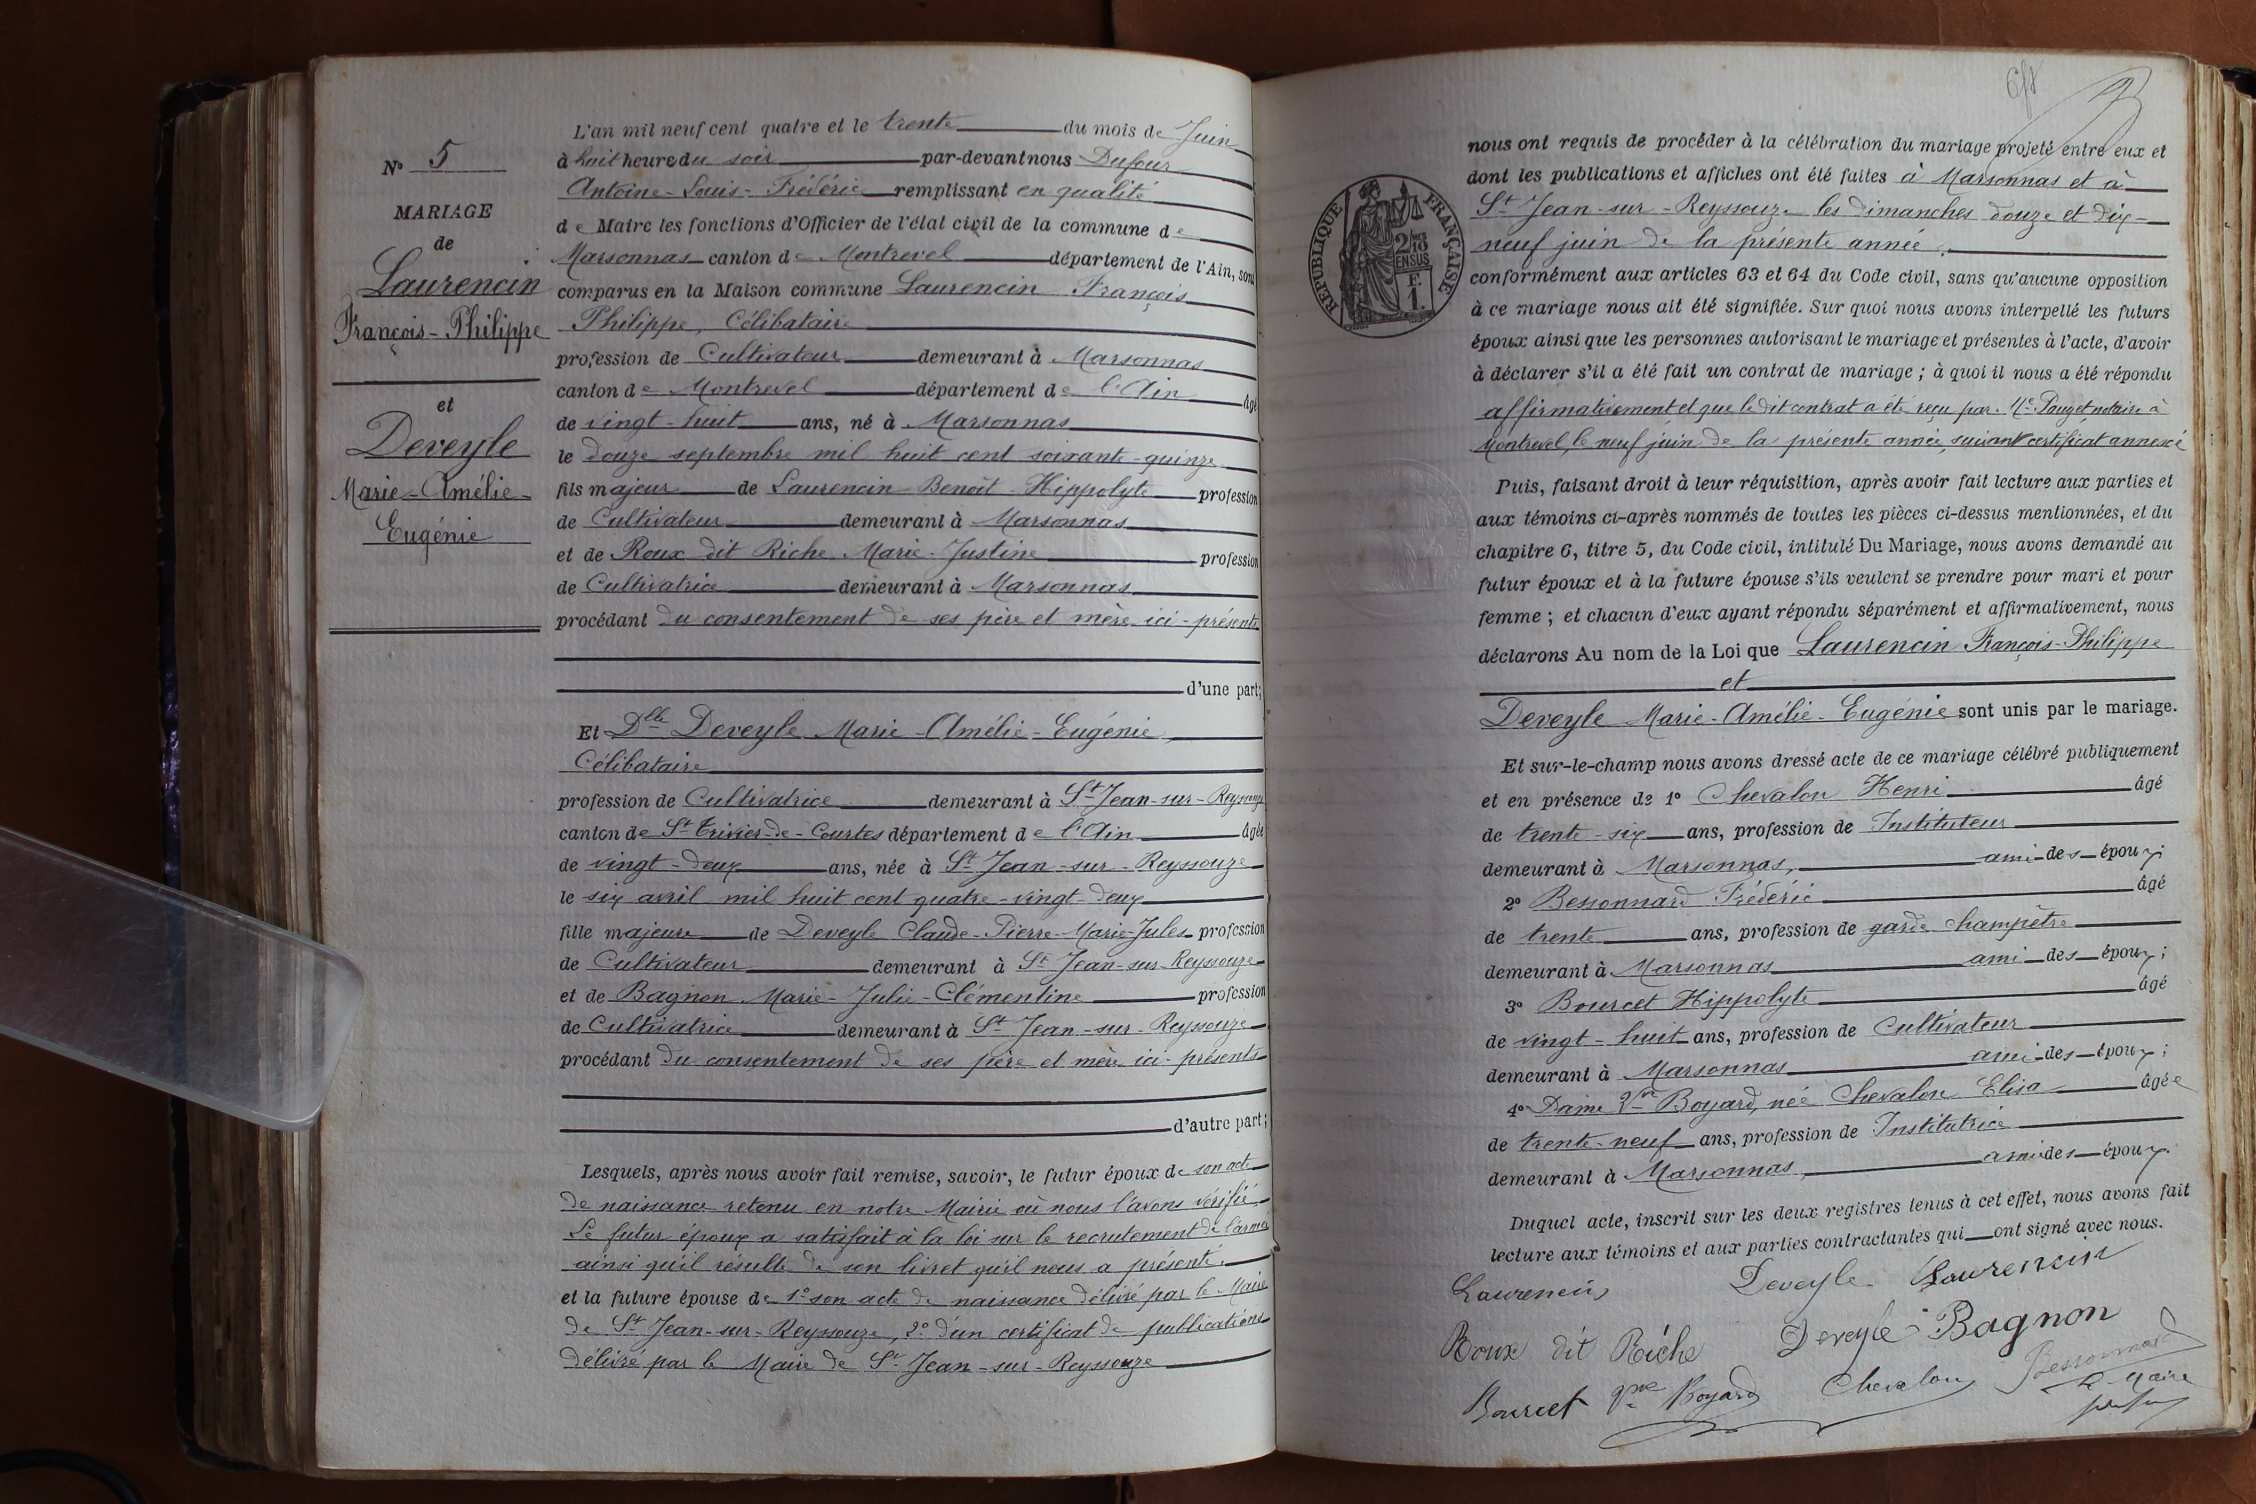 N° 5
MARIAGE
de
Laurencin
François-Philippe
et
Deveyle
Marie-Amélie-
Eugénie
L'an mil neuf cent quatre et le trente du mois de Juin
à huit heure du soir par-devant nous Dufour
Antoine-Louis-Frédéric remplissant en qualité
de Maire les fonctions d'Officier de l'état civil de la commune de
Marsonnas canton de Montrevel département de l'Ain, sont
comparus en la Maison commune Laurencin François
Philippe, Célibataire
profession de Cultivateur demeurant à Marsonnas
canton de Montrevel département de l'Ain âgé
de vingt-huit ans, né à Marsonnas
le douze septembre mil huit cent soixante-quinze
fils majeur de Laurencin Benoît Hippolyte profession
de Cultivateur demeurant à Marsonnas
et de Roux dit Riche Marie-Justine profession
de Cultivatrice demeurant à Marsonnas
procédant du consentement de ses père et mère ici-présents
d'une part;
Et Dlle Deveyle Marie-Amélie-Eugénie,
Célibataire
profession de Cultivatrice demeurant à St Jean-sur-Reyssouze
canton de St Trivier-de-Courtes département de l'Ain âgée
de vingt-deux ans, née à St Jean-sur-Reyssouze
le six avril mil huit cent quatre-vingt-deux
fille majeure de Deveyle Claude-Pierre-Marie-Jules profession
de Cultivateur demeurant à St Jean-sur-Reyssouze
et de Bagnon Marie-Julie-Clémentine profession
de Cultivatrice demeurant à St Jean-sur-Reyssouze
procédant du consentement de ses père et mère ici-présents
d'autre part;
Lesquels, après nous avoir fait remise, savoir, le futur époux de son acte
de naissance retenu en notre Mairie où nous l'avons vérifié
Le futur époux a satisfait à la loi sur le recrutement de l'armée
ainsi qu'il résulte de son livret qu'il nous a présenté.
et la future épouse de 1° son acte de naissance délivré par le Maire
de St Jean-sur-Reyssouze, 2° d'un certificat de publications
délivré par le Maire de St Jean-sur-Reyssouze
RÉPUBLIQUE FRANÇAISE
2/10 EN SUS
1 F.
nous ont requis de procéder à la célébration du mariage projeté entre eux et
dont les publications et affiches ont été faites à Marsonnas et à
St Jean-sur-Reyssouze les dimanches douze et dix-
neuf juin de la présente année.
conformément aux articles 63 et 64 du Code civil, sans qu'aucune opposition
à ce mariage nous ait été signifiée. Sur quoi nous avons interpellé les futurs
époux ainsi que les personnes autorisant le mariage et présentes à l'acte, d'avoir
à déclarer s'il a été fait un contrat de mariage ; à quoi il nous a été répondu
affirmativement et que le dit contrat a été reçu par Me Pouget notaire à
Montrevel, le neuf juin de la présente année, suivant certificat annexé
Puis, faisant droit à leur réquisition, après avoir fait lecture aux parties et
aux témoins ci-après nommés de toutes les pièces ci-dessus mentionnées, et du
chapitre 6, titre 5, du Code civil, intitulé Du Mariage, nous avons demandé au
futur époux et à la future épouse s'ils veulent se prendre pour mari et pour
femme ; et chacun d'eux ayant répondu séparément et affirmativement, nous
déclarons Au nom de la Loi que Laurencin François-Philippe
et
Deveyle Marie-Amélie-Eugénie sont unis par le mariage.
Et sur-le-champ nous avons dressé acte de ce mariage célébré publiquement
et en présence de 1° Chevalon Henri âgé
de trente-six ans, profession de Instituteur
demeurant à Marsonnas, ami des époux;
2° Bessonnard Frédéric âgé
de trente ans, profession de garde champêtre
demeurant à Marsonnas ami des époux;
3° Bourcet Hippolyte âgé
de vingt-huit ans, profession de Cultivateur
demeurant à Marsonnas ami des époux;
4° Dame Vve Boyard, née Chevalon Elisa âgée
de trente-neuf ans, profession de Institutrice
demeurant à Marsonnas, ami des époux.
Duquel acte, inscrit sur les deux registres tenus à cet effet, nous avons fait
lecture aux témoins et aux parties contractantes qui ont signé avec nous.
Laurencin Deveyle Laurencin
Roux dit Riche Deveyle Bagnon
Bourcet Vve Boyard Chevalon Bessonnard
Le Maire
Dufour